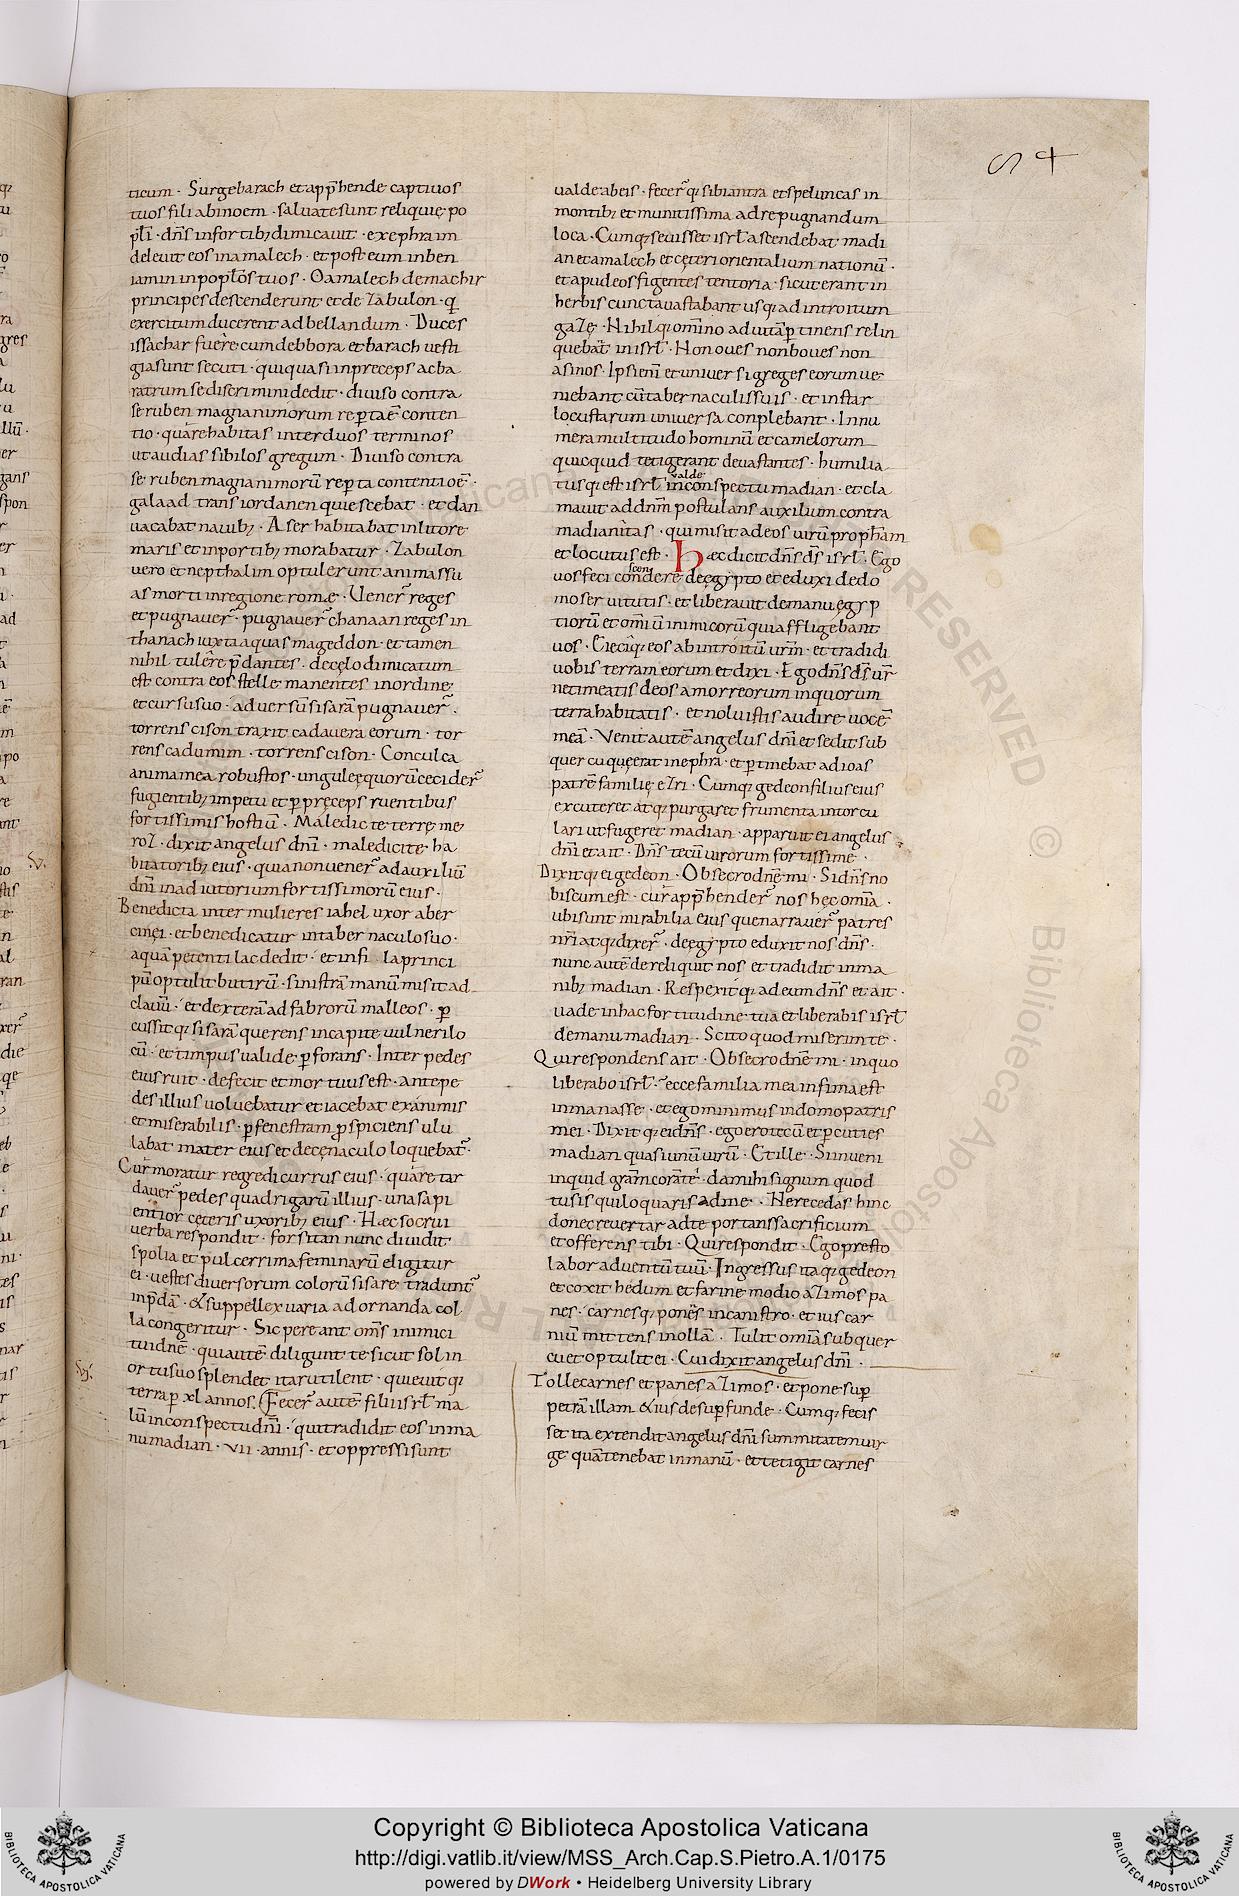 54
ticum · Surge barach et app̄hende captiuos
tuos fili abinoem · saluate sunt reliquię po
pl̄i · dn̄s in fortib; dimicauit · ex ephraim
deleuit eos in amalech · et post eum in ben
iamin in popl̄os tuos · O amalech de machir
principes descenderunt et de zabulon · q̇
exercitum ducerent ad bellandum · Duces
issachar fuere cum debbora et barach uesti
gia sunt secuti · qui quasi in preceps ac ba
ratrum se discrimini dedit · diuiso contra
se ruben magnanimorum rep̱ta ē conten
tio · quare habitas inter duos terminos
ut audias sibilos gregum · Diuiso contra
se ruben magnanimorū rep̱ta contentio ē ·
galaad trans iordanen quiescebat · et dan
uacabat nauib; · Aser habitabat in litore
maris et in portib; morabatur · Zabulon
uero et nepthalim optulerunt animas su
as morti in regione rome · Vener̄ reges
et pugnauer̄ · pugnauer̄ chanaan reges in
thanach iuxta aquas mageddon · et tamen
nihil tulere p̄dantes · de cęlo dimicatum
est contra eos stelle manentes in ordine
et cursu suo · aduersū sisarā pugnauer̄ ·
torrens cison traxit cadauera eorum · tor
rens cadumim · torrens cison · Conculca
anima mea robustos · ungulę equorū cecider̄
fugientib; impetu et p̱ pręceps ruentibus
fortissimis hostiū · Maledicte terrę me
roz · dixit angelus dn̄i · maledicite ha
bitatorib; eius · quia non uener̄ ad auxiliū
dn̄i in adiutorium fortissimorū eius ·
Benedicta inter mulieres iahel uxor aber
cinęi · et benedicatur in tabernaculo suo ·
aquā petenti lac dedit · et in fi ala princi
pū optulit butirū · sinistrā manū misit ad
clauū · et dexterā ad fabrorū malleos · p̱
cussitq; sisarā querens in capite uulneri lo
cū · et timpus ualide p̱forans · Inter pedes
eius ruit · defecit et mortuus est · ante pe
des illius uoluebatur et iacebat exanimis
et miserabilis · p̱ fenestram p̱spiciens ulu
labat mater eius et de cęnaculo loquebat̄ ·
Cur moratur regredi currus eius · quare tar
dauer̄ pedes quadrigarū illius · una sapi
entior cęteris uxorib; eius · Hæc socrui
uerba respondit · forsitan nunc diuidit
spolia et pulcerrima feminarū eligitur
ei · uestes diuersorum colorū sisare tradunt̄
in p̄dā · & suppellex uaria ad ornanda col
la congeritur · Sic pereant om̄s inimici
tui dn̄e · qui autē diligunt te sicut sol in
ortu suo splendet ita rutilent · quieuitq;
terra p̱ xl annos · Fecer̄ autē filii isrl̄ ma
lū in conspectu dn̄i · qui tradidit eos in ma
nu madian · vii · annis · et oppressi sunt
ualde ab eis · fecer̄q; sibi antra et speluncas in
montib; et munitissima ad repugnandum
loca · Cumq; seuisset isrl̄ ascendebat madi
an et amalech et cęteri orientalium nationū ·
et apud eos figentes tentoria · sicut erant in
herbis cuncta uastabant usq; ad introitum
gazę · Nihilq; omnino ad uitā p̱tinens relin
quebāt in isrl̄ · Non oues non boues non
asinos · Ipsi eni et uniuersi greges eorum ue
niebant cū tabernaculis suis · et instar
locustarum uniuersa conplebant · Innu
mera multitudo hominū et camelorum
quicquid tetigerant deuastantes · humilia
valde
tusq; est isrl̄ in conspectu madian · et cla
mauit ad dn̄m postulans auxilium contra
madianitas · qui misit ad eos uirū proph̄am
et locutus est · hæc dicit dn̄s ds̄ isrl̄ · Ego
scon
uos feci condere de ęgypto et eduxi de do
mo seruitutis · et liberaui de manu ęgyp
tiorū et omiū inimicorū qui affligebant
uos · Eiecīq; eos ab introitū urm̄ · et tradidi
uobis terram eorum et dixi · Ego dn̄s ds̄ ur̄
ne timeatis deos amorreorum in quorum
terra habitatis · et noluistis audire uocē
meā · Venit autē angelus dn̄i et sedit sub
quercu quę erat in ephra · et p̱tinebat ad ioas
patrē familię ezri · Cumq; gedeon filius eius
excuteret atq; purgaret frumenta in torcu
lari ut fugeret madian · apparuit ei angelus
dn̄i et ait · Dn̄s tecū uirorum fortissime ·
Dixitq; ei gedeon · Obsecro dn̄e mi · Si dn̄s no
biscum est · cur app̄hender̄ nos hęc omīa ·
ubi sunt mirabilia eius que narrauer̄ patres
nr̄i atq; dixer̄ · de ęgypto eduxit nos dn̄s ·
nunc autē dereliquit nos et tradidit in ma
nib; madian · Respexitq; ad eum dn̄s et ait ·
uade in hac fortitudine tua et liberabis isrl̄
de manu madian · Scito quod miserim te ·
Qui respondens ait · Obsecro dn̄e mi · in quo
liberabo isrl̄ · ecce familia mea infima est
in manasse · et ego minimus in domo patris
mei · Dixitq; ei dn̄s · ego ero tecū et p̱cuties
madian quasi unū uirū · Et ille · Si inueni
inquid gram̄ corā te · da mihi signum quod
tu sis qui loquaris ad me · Ne recedas hinc
donec reuertar ad te portans sacrificium
et offerens tibi · Qui respondit · Ego presto
labor aduentū tuū · Ingressus itaq; gedeon
et coxit hedum et farine modio azimos pa
nes · carnesq; ponēs in canistro · et ius car
niū mittens in ollā · Tulit omīa sub quer
cu et optulit ei · Cui dixit angelus dn̄i ·
Tolle carnes et panes azimos · et pone sup̱
petrā illam · & ius desup̱ funde · Cumq; fecis
set ita extendit angelus dn̄i summitatem uir
gę quā tenebat in manū · et tetigit carnes
Copyright © Biblioteca Apostolica Vaticana
http://digi.vatlib.it/view/MSS_Arch.Cap.S.Pietro.A.1/0175
powered by DWork • Heidelberg University Library